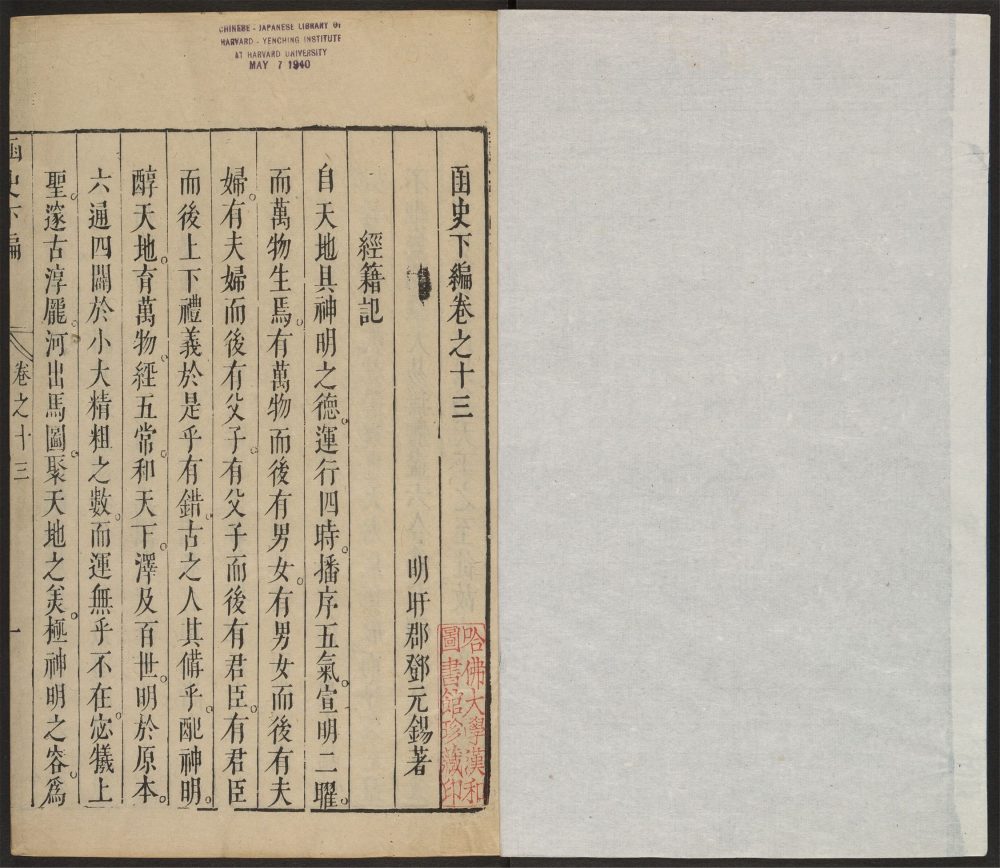 CHINESE - JAPANESE LIBRARY OF
HARVARD - YENCHING INSTITUTE
AT HARVARD UNIVERSITY
MAY 7 1940
函史下編卷之十三
明盱郡鄧元錫著
哈佛大學漢和
圖書館珍藏印
經籍記
自天地具神明之德。運行四時。播序五氣。宣明二曜。
而萬物生焉。有萬物而後有男女。有男女而後有夫
婦。有夫婦而後有父子。有父子而後有君臣。有君臣
而後上下禮義於是乎有錯。古之人其備乎。配神明。
醇天地。育萬物。經五常。和天下。澤及百世。明於原本。
六通四闢於小大精粗之數。而運無乎不在。宓犧上
聖。邃古淳龐。河出馬圖。聚天地之美。極神明之容。爲
函史下編
卷之十三
一